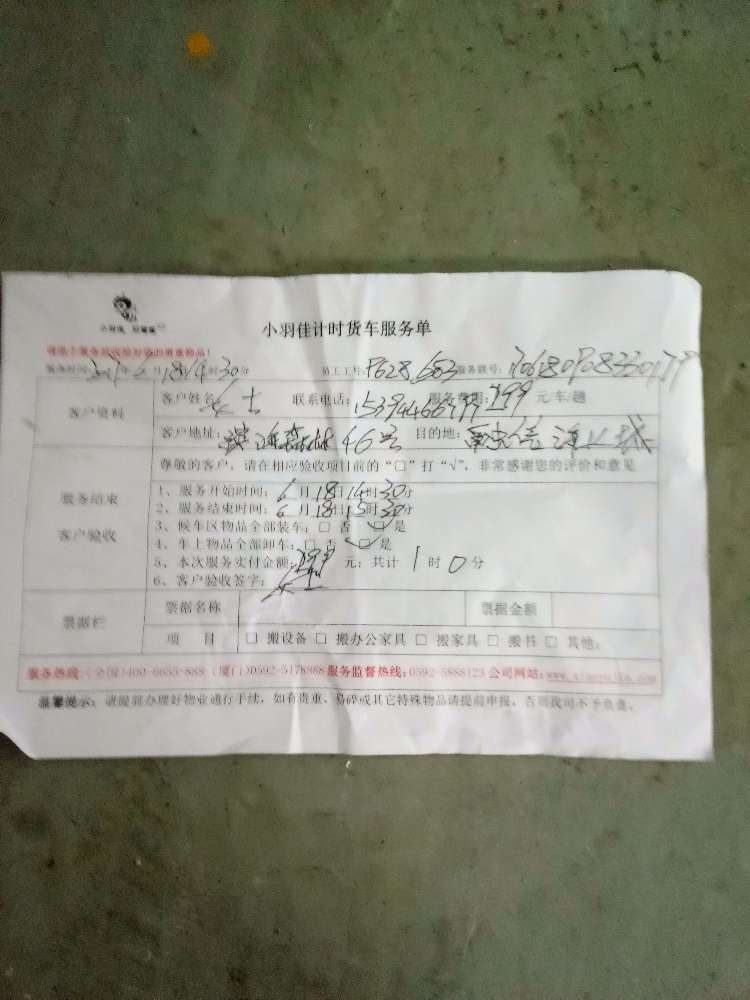 小羽佳计时货车服务单
服务时间: 年6月18日14时30分 员工工号: 服务联号:
客户资料
客户姓名: 女士 联系电话: 服务费用:199元/车/趟
客户地址: 46号 目的地:
服务结束
客户验收
尊敬的客户,请在相应验收项目前的“□”打“√”,非常感谢您的评价和意见
1、服务开始时间:6月18日14时30分
2、服务结束时间:6月18日15时30分
3、候车区物品全部装车:□ 否 ☑ 是
4、车上物品全部卸车:□ 否 ☑ 是
5、本次服务实付金额: 元;共计 1 时 0 分
6、客户验收签字:
票据栏
票据名称 票据金额
项 目 □ 搬设备 □ 搬办公家具 □ 搬家具 □ 搬书 □ 其他:
服务热线:(全国)400-6655-888 (厦门)0592-5178888 服务监督热线:0592-5888123 公司网站:
温馨提示:请提前办理好物业通行手续,如有贵重、易碎或其它特殊物品请提前申报,否则我司不予负责。